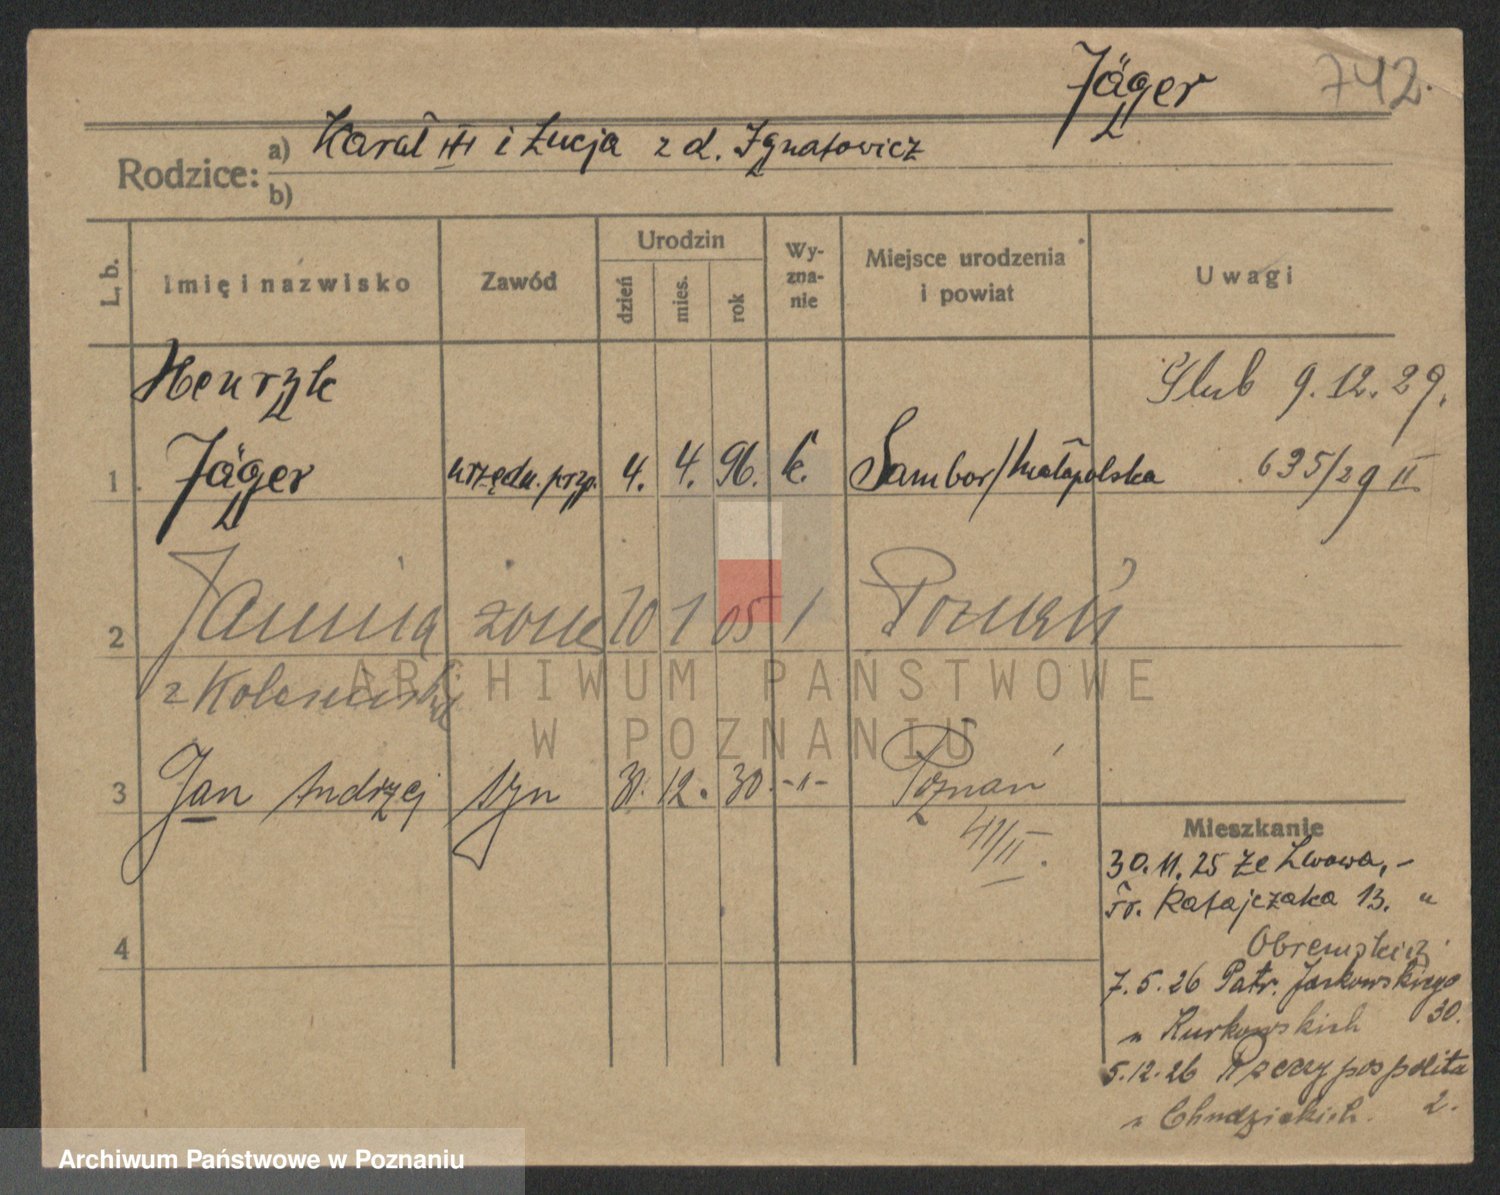 Jäger 742.
Rodzice: a) Karol i Łucja z d. Ignatowicz
b)
L. b. Imię i nazwisko Zawód Urodzin dzień mies. rok Wy-zna-nie Miejsce urodzenia i powiat Uwagi
Henryk Ślub 9.12.29.
1 Jäger urzędn. pryw. 4. 4. 96. k. Sambor/Małopolska 635/29 II
2 Janina żona 10 1 05 Poznań
z
3 Jan Andrzej syn 31. 12. 30. -"- Poznań
41/II.
Mieszkanie
30.11.25 ze Lwowa,-
Fr. Ratajczaka 13. "
4
7.5.26 Patr. Jackowskiego
" Kurkowskich 30.
5.12.26 Rzeczypospolita
" Chudzickich. 2.
ARCHIWUM PAŃSTWOWE
W POZNANIU
Archiwum Państwowe w Poznaniu